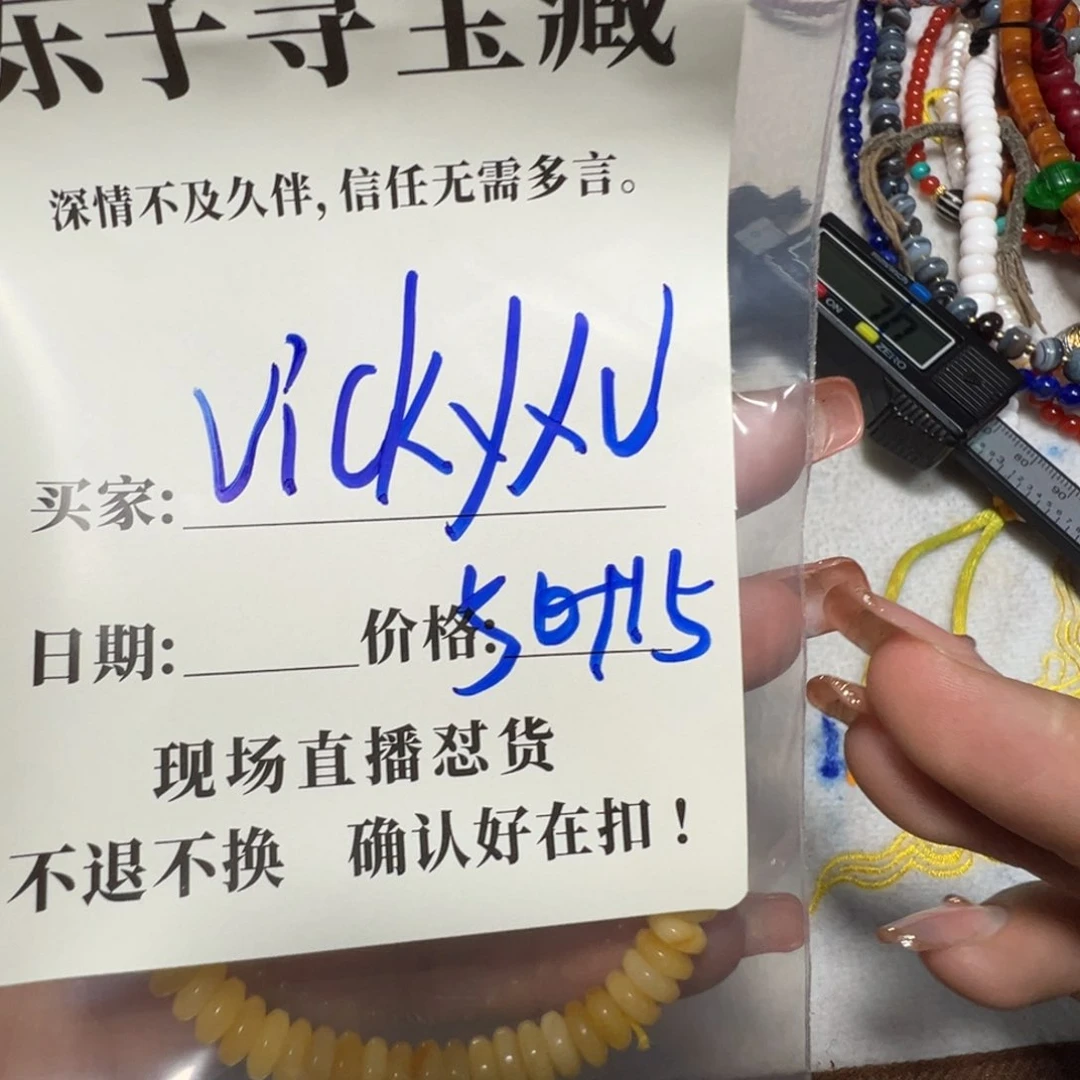 东子寻宝藏
深情不及久伴，信任无需多言。
买家: vickyxu
日期: 价格:
现场直播怼货
不退不换 确认好在扣！
ON
ZERO
80
90